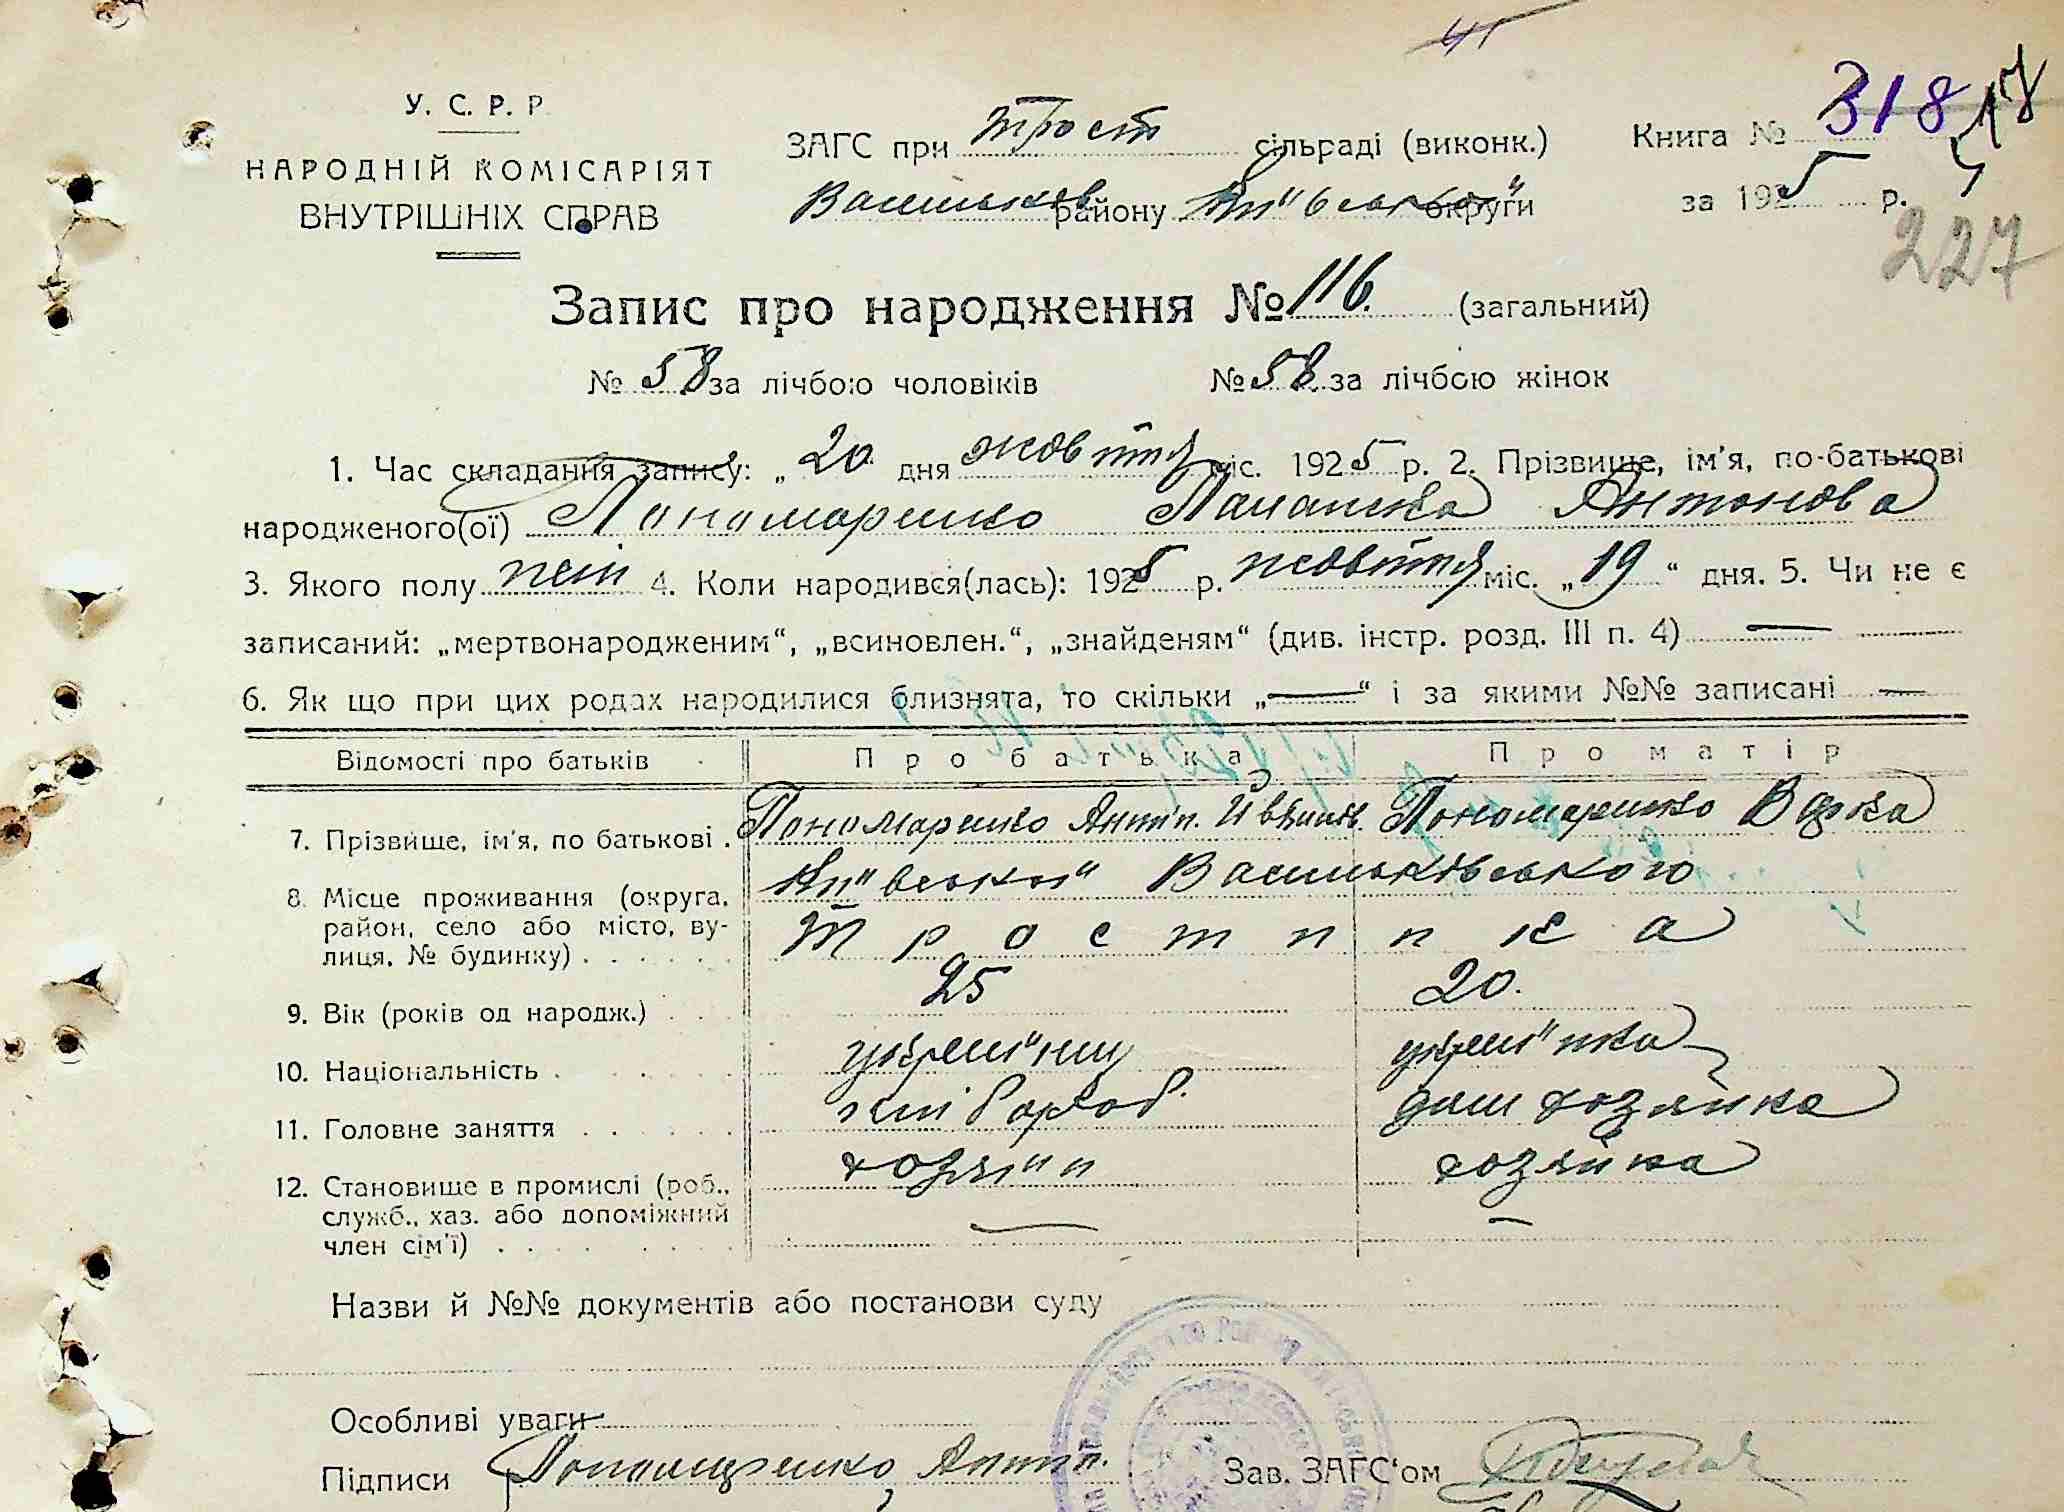 У. С. Р. Р.
НАРОДНІЙ КОМІСАРІЯТ
ВНУТРІШНІХ СПРАВ
ЗАГС при Трост сільраді (виконк.)
Васильков району Київської округи
Книга № 318
за 1925 р.
227
Запис про народження № 116. (загальний)
№ 58 за лічбою чоловіків № 58 за лічбою жінок
1. Час складання запису: „20 дня жовтня міс. 1925 р. 2. Прізвище, ім'я, по-батькові
народженого(ої) Пономаренко Палашка Антонова
3. Якого полу жін 4. Коли народився(лась): 1925 р. жовтня міс. „19“ дня. 5. Чи не є
записаний: „мертвонародженим“, „всиновлен.“, „знайденям“ (див. інстр. розд. III п. 4) —
6. Як що при цих родах народилися близнята, то скільки „—“ і за якими №№ записані —
Відомості про батьків Про батька Про матір
7. Прізвище, ім'я, по батькові . Пономаренко Антін Пономаренко Варка
8. Місце проживання (округа, район, село або місто, вулиця, № будинку) Київської Васильківського
Тростинка
9. Вік (років од народж.) 25 20.
10. Національність . українец українка
11. Головне заняття хлібороб. дом хозяйка
12. Становище в промислі (роб., служб., хаз. або допоміжний член сім'ї) хозяїн хозяйка
Назви й №№ документів або постанови суду
Особливі уваги
Підписи Пономаренко Антін Зав. ЗАГС'ом